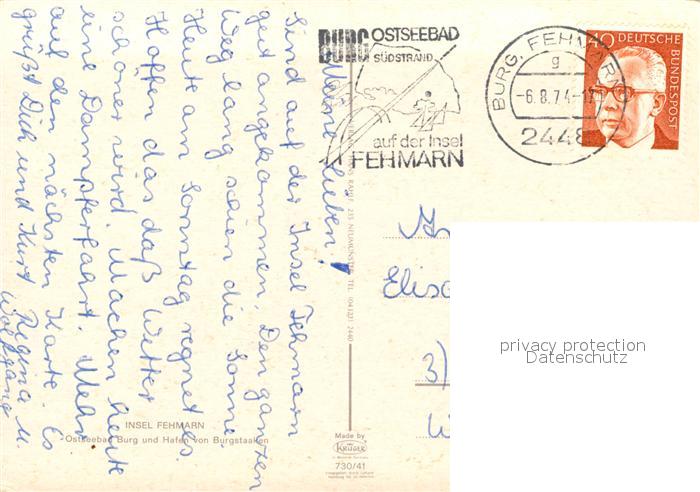 BURG OSTSEEBAD
SÜDSTRAND
auf der Insel
FEHMARN
BURG, FEHMARN
g
-6.8.74-
2448
40 DEUTSCHE
BUNDESPOST
Meine Lieben!
Sind auf der Insel Fehmarn
gut angekommen. Den ganzen
Weg lang schien die Sonne.
Heute am Sonntag regnet es.
Hoffen das daß Wetter
schöner wird. Machen heute
eine Dampferfahrt. Mehr
auf der nächsten Karte. Es
grüßt Dich und Kurt Regina u.
Wolfgang
3)
privacy protection
Datenschutz
INSEL FEHMARN
Ostseebad Burg und Hafen von Burgstaaken
Made by
KRÜGER
730/41